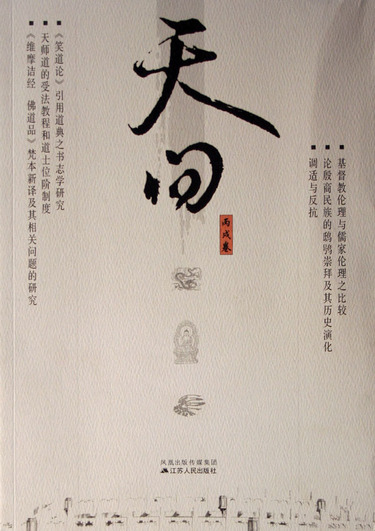 天问
丙戌卷
基督教伦理与儒家伦理之比较
论殷商民族的鸱鸮崇拜及其历史演化
调适与反抗
《笑道论》引用道典之书志学研究
天师道的受法教程和道士位阶制度
《维摩诘经 佛道品》梵本新译及其相关问题的研究
凤凰出版传媒集团
江苏人民出版社